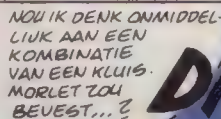 NOU IK DENK ONMIDDEL-
LIJK AAN EEN
KOMBINATIE
VAN EEN KLUIS.
MORLET ZOU
BEVEST...?